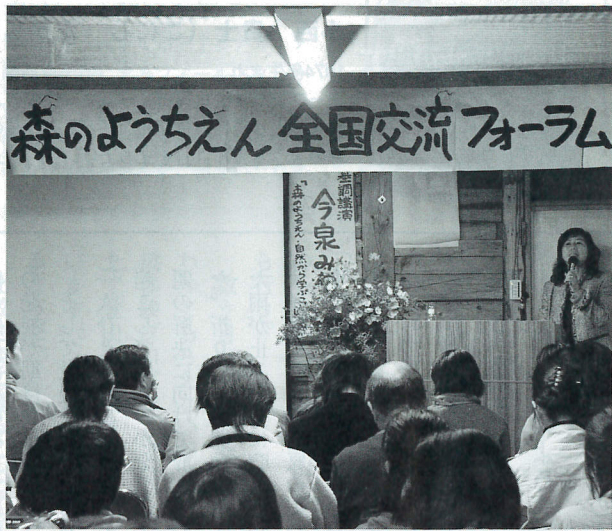 森のようちえん 全国交流 フォーラム
基調講演
今泉み
「森のようちえん・自然から学ぶこ